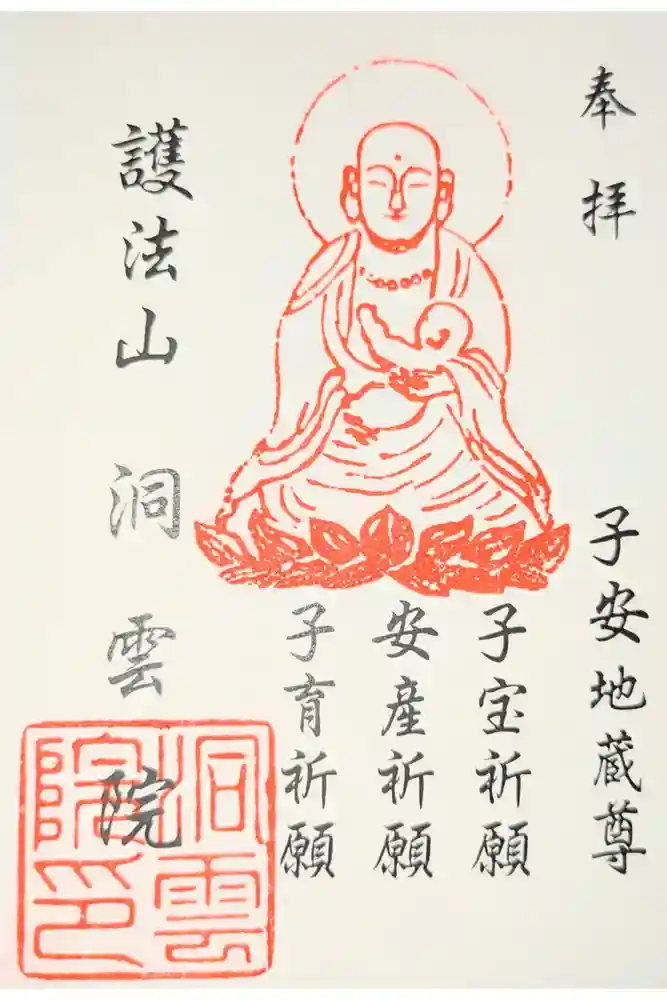 奉拝
子安地蔵尊
子宝祈願
安産祈願
子育祈願
護法山 洞雲院
洞雲
院印